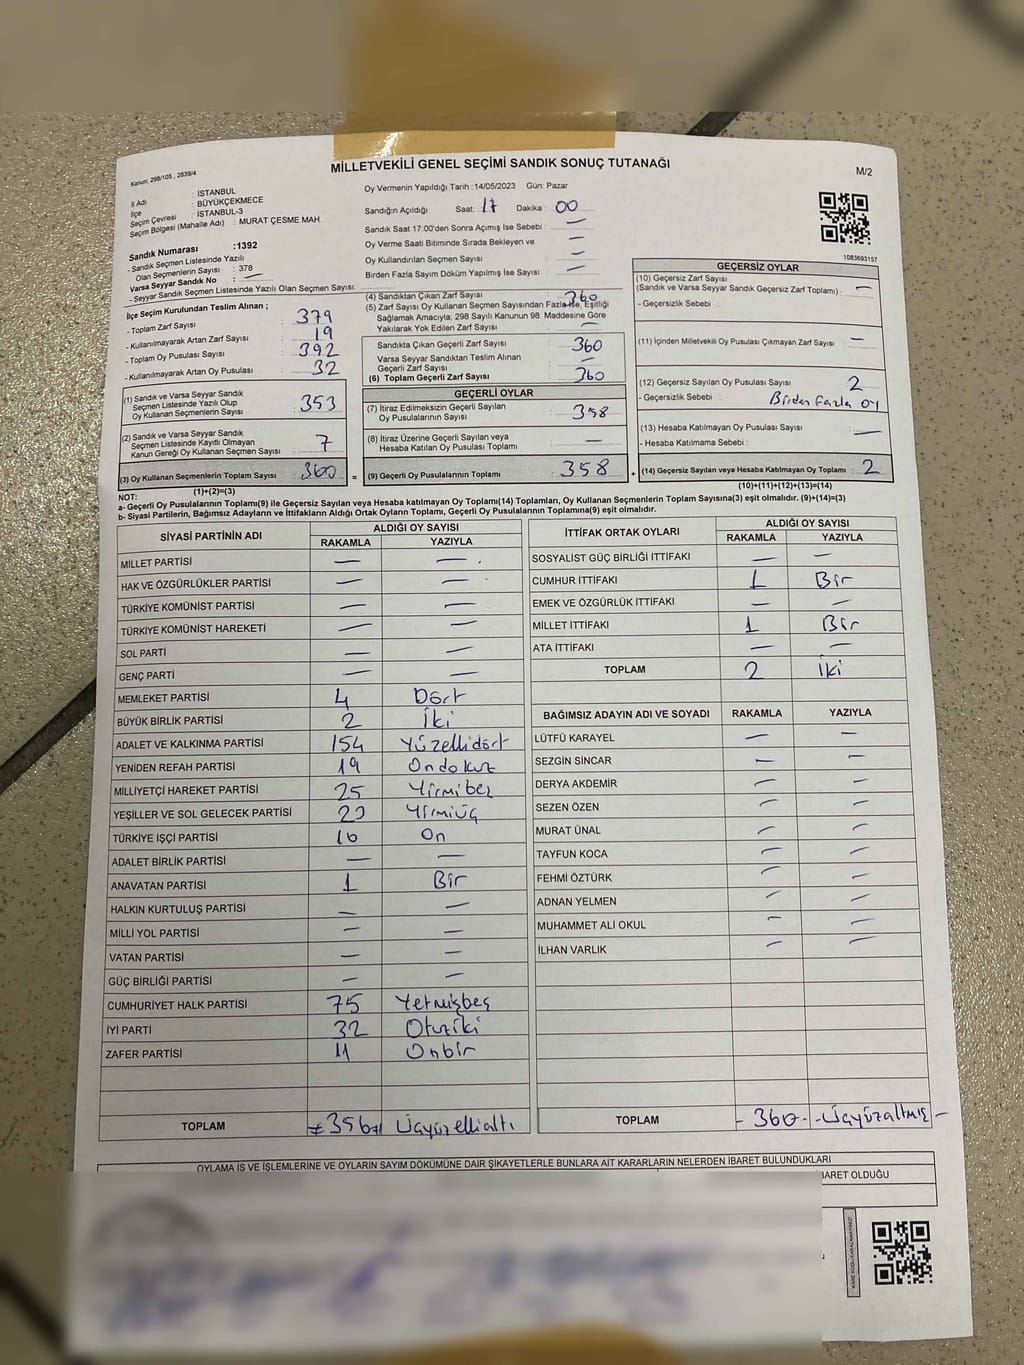 MİLLETVEKİLİ GENEL SEÇİMİ SANDIK SONUÇ TUTANAĞI
Kanun; 298/105 , 2839/4
M/2
İl Adı : İSTANBUL
İlçe : BÜYÜKÇEKMECE
Seçim Çevresi : İSTANBUL-3
Seçim Bölgesi (Mahalle Adı) : MURAT ÇESME MAH.
Sandık Numarası :1392
- Sandık Seçmen Listesinde Yazılı
Olan Seçmenlerin Sayısı : 378
Varsa Seyyar Sandık No : —
- Seyyar Sandık Seçmen Listesinde Yazılı Olan Seçmen Sayısı:
Oy Vermenin Yapıldığı Tarih :14/05/2023 Gün: Pazar
Sandığın Açıldığı Saat: 17 Dakika : 00
Sandık Saat 17.00'den Sonra Açımış İse Sebebi : —
Oy Verme Saati Bitiminde Sırada Bekleyen ve
Oy Kullandırılan Seçmen Sayısı : —
Birden Fazla Sayım Döküm Yapılmış İse Sayısı : —
1083693157
İlçe Seçim Kurulundan Teslim Alınan ;
- Toplam Zarf Sayısı : 379
- Kullanılmayarak Artan Zarf Sayısı : 19
- Toplam Oy Pusulası Sayısı : 392
- Kullanılmayarak Artan Oy Pusulası : 32
(1) Sandık ve Varsa Seyyar Sandık
Seçmen Listesinde Yazılı Olup
Oy Kullanan Seçmenlerin Sayısı : 353
(2) Sandık ve Varsa Seyyar Sandık
Seçmen Listesinde Kayıtlı Olmayan
Kanun Gereği Oy Kullanan Seçmen Sayısı : 7
(3) Oy Kullanan Seçmenlerin Toplam Sayısı 360 =
(1)+(2)=(3)
(4) Sandıktan Çıkan Zarf Sayısı : 360
(5) Zarf Sayısı Oy Kullanan Seçmen Sayısından Fazla İse, Eşitliği
Sağlamak Amacıyla; 298 Sayılı Kanunun 98. Maddesine Göre
Yakılarak Yok Edilen Zarf Sayısı : —
Sandıkta Çıkan Geçerli Zarf Sayısı : 360
Varsa Seyyar Sandıktan Teslim Alınan
Geçerli Zarf Sayısı : —
(6) Toplam Geçerli Zarf Sayısı : 360
GEÇERLİ OYLAR
(7) İtiraz Edilmeksizin Geçerli Sayılan
Oy Pusulalarının Sayısı : 358
(8) İtiraz Üzerine Geçerli Sayılan veya
Hesaba Katılan Oy Pusulası Toplamı : —
(9) Geçerli Oy Pusulalarının Toplamı : 358 +
GEÇERSİZ OYLAR
(10) Geçersiz Zarf Sayısı
(Sandık ve Varsa Seyyar Sandık Geçersiz Zarf Toplamı) : —
- Geçersizlik Sebebi :
(11) İçinden Milletvekili Oy Pusulası Çıkmayan Zarf Sayısı : —
(12) Geçersiz Sayılan Oy Pusulası Sayısı : 2
- Geçersizlik Sebebi : Birden fazla oy
(13) Hesaba Katılmayan Oy Pusulası Sayısı : —
- Hesaba Katılmama Sebebi :
(14) Geçersiz Sayılan veya Hesaba Katılmayan Oy Toplamı : 2
(10)+(11)+(12)+(13)=(14)
NOT:
a- Geçerli Oy Pusulalarının Toplamı(9) ile Geçersiz Sayılan veya Hesaba katılmayan Oy Toplamı(14) Toplamları, Oy Kullanan Seçmenlerin Toplam Sayısına(3) eşit olmalıdır. (9)+(14)=(3)
b- Siyasi Partilerin, Bağımsız Adayların ve İttifakların Aldığı Ortak Oyların Toplamı, Geçerli Oy Pusulalarının Toplamına(9) eşit olmalıdır.
SİYASİ PARTİNİN ADI ALDIĞI OY SAYISI
RAKAMLA YAZIYLA
MİLLET PARTİSİ — —
HAK VE ÖZGÜRLÜKLER PARTİSİ — —
TÜRKİYE KOMÜNİST PARTİSİ — —
TÜRKİYE KOMÜNİST HAREKETİ — —
SOL PARTİ — —
GENÇ PARTİ — —
MEMLEKET PARTİSİ 4 Dört
BÜYÜK BİRLİK PARTİSİ 2 İki
ADALET VE KALKINMA PARTİSİ 154 Yüzellidört
YENİDEN REFAH PARTİSİ 19 Ondokuz
MİLLİYETÇİ HAREKET PARTİSİ 25 Yirmibeş
YEŞİLLER VE SOL GELECEK PARTİSİ 23 Yirmiüç
TÜRKİYE İŞÇİ PARTİSİ 10 On
ADALET BİRLİK PARTİSİ — —
ANAVATAN PARTİSİ 1 Bir
HALKIN KURTULUŞ PARTİSİ — —
MİLLİ YOL PARTİSİ — —
VATAN PARTİSİ — —
GÜÇ BİRLİĞİ PARTİSİ — —
CUMHURİYET HALK PARTİSİ 75 Yetmişbeş
İYİ PARTİ 32 Otuziki
ZAFER PARTİSİ 11 Onbir
TOPLAM 356 Üçyüzelliatı
İTTİFAK ORTAK OYLARI ALDIĞI OY SAYISI
RAKAMLA YAZIYLA
SOSYALİST GÜÇ BİRLİĞİ İTTİFAKI — —
CUMHUR İTTİFAKI 1 Bir
EMEK VE ÖZGÜRLÜK İTTİFAKI — —
MİLLET İTTİFAKI 1 Bir
ATA İTTİFAKI — —
TOPLAM 2 İki
BAĞIMSIZ ADAYIN ADI VE SOYADI RAKAMLA YAZIYLA
LÜTFÜ KARAYEL — —
SEZGİN SİNCAR — —
DERYA AKDEMİR — —
SEZEN ÖZEN — —
MURAT ÜNAL — —
TAYFUN KOCA — —
FEHMİ ÖZTÜRK — —
ADNAN YELMEN — —
MUHAMMET ALİ OKUL — —
İLHAN VARLIK — —
TOPLAM - 360 - - Üçyüzaltmış -
OYLAMA İŞ VE İŞLEMLERİNE VE OYLARIN SAYIM DÖKÜMÜNE DAİR ŞİKAYETLERLE BUNLARA AİT KARARLARIN NELERDEN İBARET BULUNDUKLARI
İBARET OLDUĞU